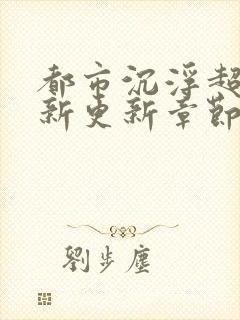 都市沉浮超
新更新章節
劉步塵